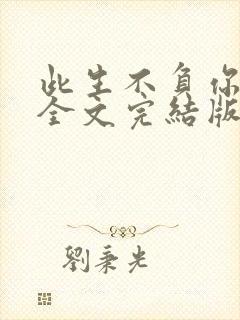 此生不負你
全文完結版
劉秉光